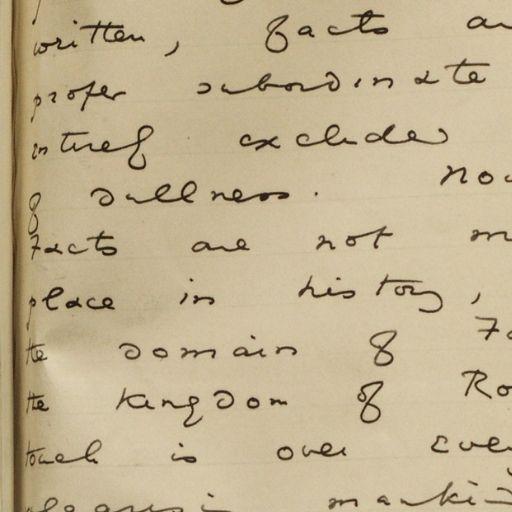 written, facts
proper subordinate
 excludes
of dullness. Now
Facts are not
place in history,
the domain of
the kingdom of Ro
touch is over